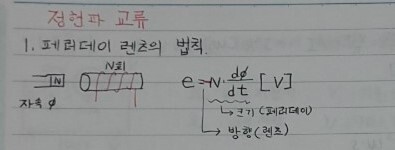 정현파 교류
1. 페러데이 렌츠의 법칙.
N회
N
자속 φ
e = -N · dφ/dt [V]
↳ 크기 (페러데이)
→ 방향 (렌츠)